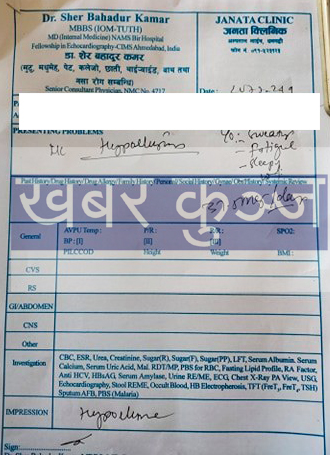 Dr. Sher Bahadur Kamar
MBBS (IOM-TUTH)
MD (Internal Medicine) NAMS Bir Hospital
Fellowship in Echocardiography-CIMS Ahmedabad, India
डा. शेर बहादुर कमर
(मुटु, मधुमेह, पेट, कलेजो, छाती, थाईराईड, बाथ तथा
नसा रोग सम्बन्धी)
Senior Consultant Physician, NMC No. 4717
JANATA CLINIC
जनता क्लिनिक
अस्पताल लाईन,
फोन नं.
Date :
PRESENTING PROBLEMS
Fatigue
Sleepy
Past History/Drug History/Drug Allergy/Family History/Personal/Social History/Gynae/Obs/History/Systemic Review
खबर कुञ्ज
General
AVPU Temp :
P/R :
R/R :
SPO2:
BP : [I]
[II]
PILCCOD
Height
Weight
BMI :
CVS
RS
GI/ABDOMEN
CNS
Other
Investigation
CBC, ESR, Urea, Creatinine, Sugar(R), Sugar(F), Sugar(PP), LFT, Serum Albumin. Serum
Calcium, Serum Uric Acid, Mal. RDT/MP, PBS for RBC, Fasting Lipid Profile, RA Factor,
Anti HCV, HBsAG, Serum Amylase, Urine RE/ME, ECG, Chest X-Ray PA View, USG,
Echocardiography, Stool REME, Occult Blood, HB Electropheresis, TFT (FreT₃, FreT₄, TSH)
Sputum AFB, PBS (Malaria)
IMPRESSION
Sign: